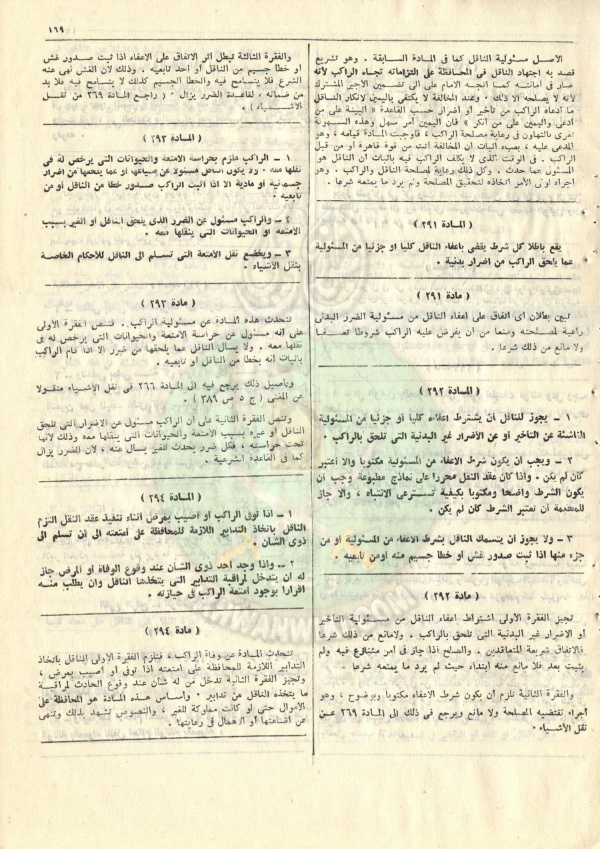 ١٦٩
الاصل مسئولية الناقل كما فى المادة السابقة . وهو تشريع
قصد به اجتهاد الناقل فى المحافظة على التزاماته تجاه الراكب لأنه
صار فى أمانته كما اتجه الامام على الى تضمين الاجير المشترك
لأنه لا يصلحه الا ذلك . وعند المخالفة لا يكتفى باليمين لانكار الناقل
ما ادعاه الراكب من تأخير أو اضرار حسب القاعدة « البينة على من
ادعى واليمين على من أنكر » فان اليمين أمر سهل وهذه السهولة
تغرى بالتهاون فى رعاية مصلحة الراكب ، فأوجبت المادة قيامه ، وهو
المدعى عليه ، بعبء اثبات ان المخالفة أتت من قوة قاهرة أو من قبل
الراكب . فى الوقت الذى لا يكلف الراكب فيه باثبات ان الناقل هو
المسئول عما حدث . وكل ذلك رعاية لمصلحة الناقل والراكب . وهو
اجراء لولى الأمر اتخاذه لتحقيق المصلحة ولم يرد ما يمنعه شرعا .
( المادة ٢٩١ )
يقع باطلا كل شرط يقضى باعفاء الناقل كليا أو جزئيا من المسئولية
عما يلحق الراكب من اضرار بدنية .
( مادة ٢٩١ )
تبين بطلان أى اتفاق على إعفاء الناقل من مسئولية الضرر البدنى
رعاية لمصلحته ومنعا من أن يفرض عليه الراكب شروطا تعسفيا
ولا مانع من ذلك شرعا .
( المادة ٢٩٢ )
١ – يجوز للناقل أن يشترط اعفاءه كليا أو جزئيا من المسئولية
الناشئة عن التأخير أو عن الأضرار غير البدنية التى تلحق بالراكب .
٢ – ويجب أن يكون شرط الاعفاء من المسئولية مكتوبا والا أعتبر
كأن لم يكن . واذا كان عقد النقل محررا على نماذج مطبوعة وجب أن
يكون الشرط واضحا ومكتوبا بكيفية تسترعى الانتباه ، والا جاز
للمحكمة أن تعتبر الشرط كأن لم يكن .
٣ – ولا يجوز أن يتمسك الناقل بشرط الاعفاء من المسئولية أو من
جزء منها اذا ثبت صدور غش أو خطأ جسيم منه أو من تابعيه .
( مادة ٢٩٢ )
تجيز الفقرة الأولى اشتراط اعفاء الناقل من مسئولية التأخير
أو الاضرار غير البدنية التى تلحق بالراكب . ولا مانع من ذلك شرعا
فالاتفاق شريعة المتعاقدين . والصلح اذا جاز فى أمر متنازع فيه ولم
يثبت بعد فلا مانع منه ابتداء حيث لم يرد ما يمنعه شرعا .
والفقرة الثانية تلزم أن يكون شرط الاعفاء مكتوبا وبوضوح ، وهو
أجراء تقتضيه المصلحة ولا مانع ويرجع فى ذلك الى المادة ٢٦٩ عن
نقل الأشياء .
والفقرة الثالثة تبطل أثر الاتفاق على الاعفاء اذا ثبت صدور غش
أو خطأ جسيم من الناقل أو أحد تابعيه . وذلك لأن الغش نهى عنه
الشرع فلا يتسامح فيه والخطأ الجسيم كذلك لا يتسامح فيه فلا بد
من ضمانه ، لقاعدة الضرر يزال . ( راجع المادة ٢٦٩ من نقل
الأشياء ) .
( المادة ٢٩٣ )
١ – الراكب ملزم بحراسة الأمتعة والحيوانات التى يرخص له فى
نقلها معه . ولا يكون الناقل مسئولا عن ضياعها أو عما يلحقها من اضرار
جسمانية أو مادية الا اذا اثبت الراكب صدور خطأ من الناقل أو من
تابعيه .
٢ – والراكب مسئول عن الضرر الذى يلحق الناقل أو الغير بسبب
الأمتعة أو الحيوانات التى ينقلها معه .
٣ – ويخضع نقل الأمتعة التى تسلم الى الناقل للأحكام الخاصة
بنقل الأشياء .
( مادة ٢٩٣ )
تتحدث هذه المادة عن مسئولية الراكب . فتنص الفقرة الأولى
على انه مسئول عن حراسة الامتعة والحيوانات التى يرخص له فى
نقلها معه . ولا يسأل الناقل عما يلحقها من ضرر الا اذا قام الراكب
باثبات انه بخطأ من الناقل أو تابعيه .
وتأصيل ذلك يرجع فيه الى المادة ٢٦٦ فى نقل الأشياء منقولا
عن المغنى ( ج ٥ ص ٣٨٦ ) .
وتنص الفقرة الثانية على أن الراكب مسئول عن الاضرار التى تلحق
الناقل أو غيره بسبب الامتعة والحيوانات التى ينقلها معه وذلك لأنها
تحت حراسته ، فكل ضرر يحدث للغير يسأل عنه ، لأن الضرر يزال
كما فى القاعدة الشرعية .
( المادة ٢٩٤ )
١ – اذا توفى الراكب أو أصيب بمرض أثناء تنفيذ عقد النقل التزم
الناقل باتخاذ التدابير اللازمة للمحافظة على أمتعته الى أن تسلم الى
ذوى الشأن .
٢ – واذا وجد احد ذوى الشأن عند وقوع الوفاة أو المرض جاز
له ان يتدخل لمراقبة التدابير التى يتخذها الناقل وان يطلب منه
اقرارا بوجود أمتعة الراكب فى حيازته .
( مادة ٢٩٤ )
تتحدث المادة عن وفاة الراكب ، فتلزم الفقرة الأولى الناقل باتخاذ
التدابير اللازمة للمحافظة على أمتعته اذا توفى أو أصيب بمرض ،
وتجيز الفقرة الثانية تدخل من له شأن عند وقوع الحادث لمراقبة
ما يتخذه الناقل من تدابير . وأساس هذه المادة هو المحافظة على
الأموال حتى لو كانت مملوكة للغير ، والنصوص تشهد بذلك وتنهى
عن اضاعتها أو الاهمال فى رعايتها .